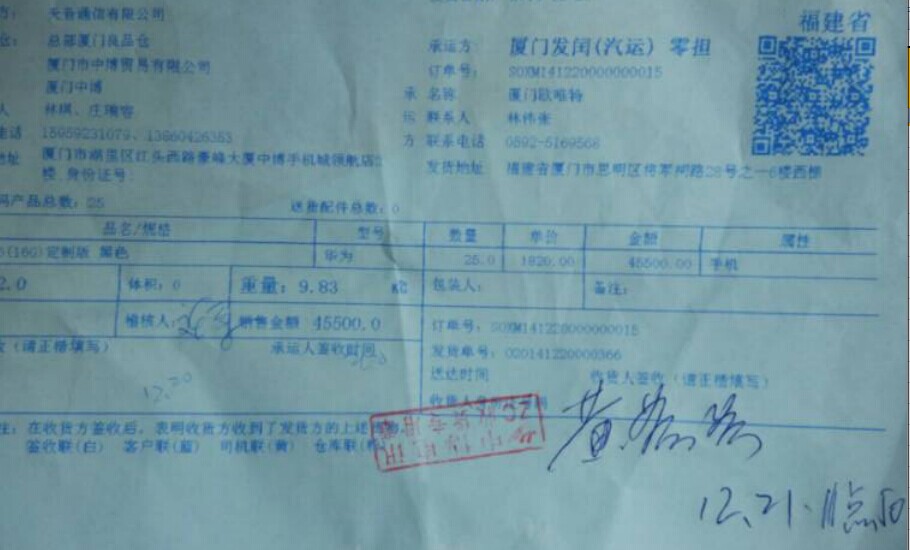 方: 天音通信有限公司
福建省
仓: 总部厦门良品仓
承运方: 厦门发闰(汽运) 零担
厦门市中博贸易有限公司
订单号: SOXM141220000000015
厦门中博
承 名称 厦门欧唯特
人 林琪、庄瑞容
运 联系人 林伟
电话 15959231079、13860426353
方 联系电话 0592-5169568
地址 厦门市湖里区江头西路豪峰大厦中博手机城领航店2
发货地址 福建省厦门市思明区将军祠路28号之一6楼西梯
楼.身份证号:
码产品总数: 25 送货配件总数: 0
品名/规格 型号 数量 单价 金额 属性
(16G)定制版 黑色 华为 25.0 1820.00 45500.00 手机
2.0 体积: 0 重量: 9.83 KG 包装人: 备注:
稽核人: 销售金额 45500.0
订单号: SOXM141220000000015
收(请正楷填写) 承运人签收时间
发货单号: 020141220000366
送达时间 收货人签收 (请正楷填写)
12.20
收货人
注: 在收货方签收后, 表明收货方收到了发货方的上述
签收联(白) 客户联(蓝) 司机联(黄) 仓库联(
黄
12.21.11点50